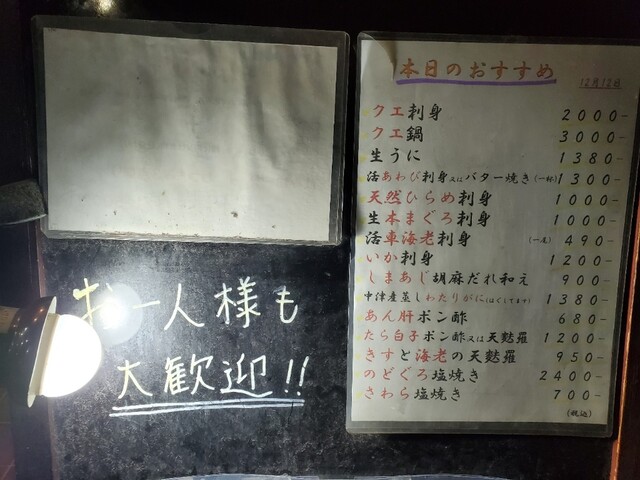 本日のおすすめ
12月12日
クエ刺身 2000-
クエ鍋 3000-
生うに 1380-
活あわび刺身又はバター焼き(一杯) 1300-
天然ひらめ刺身 1000-
生本まぐろ刺身 1000-
活車海老刺身 (一尾) 490-
いか刺身 1200-
しまあじ胡麻だれ和え 900-
中津産蒸しわたりがに(ほぐしてます) 1380-
あん肝ポン酢 680-
たら白子ポン酢又は天麩羅 1200-
きすと海老の天麩羅 950-
のどぐろ塩焼き 2400-
さわら塩焼き 700-
(税込)
お一人様も
大歓迎!!